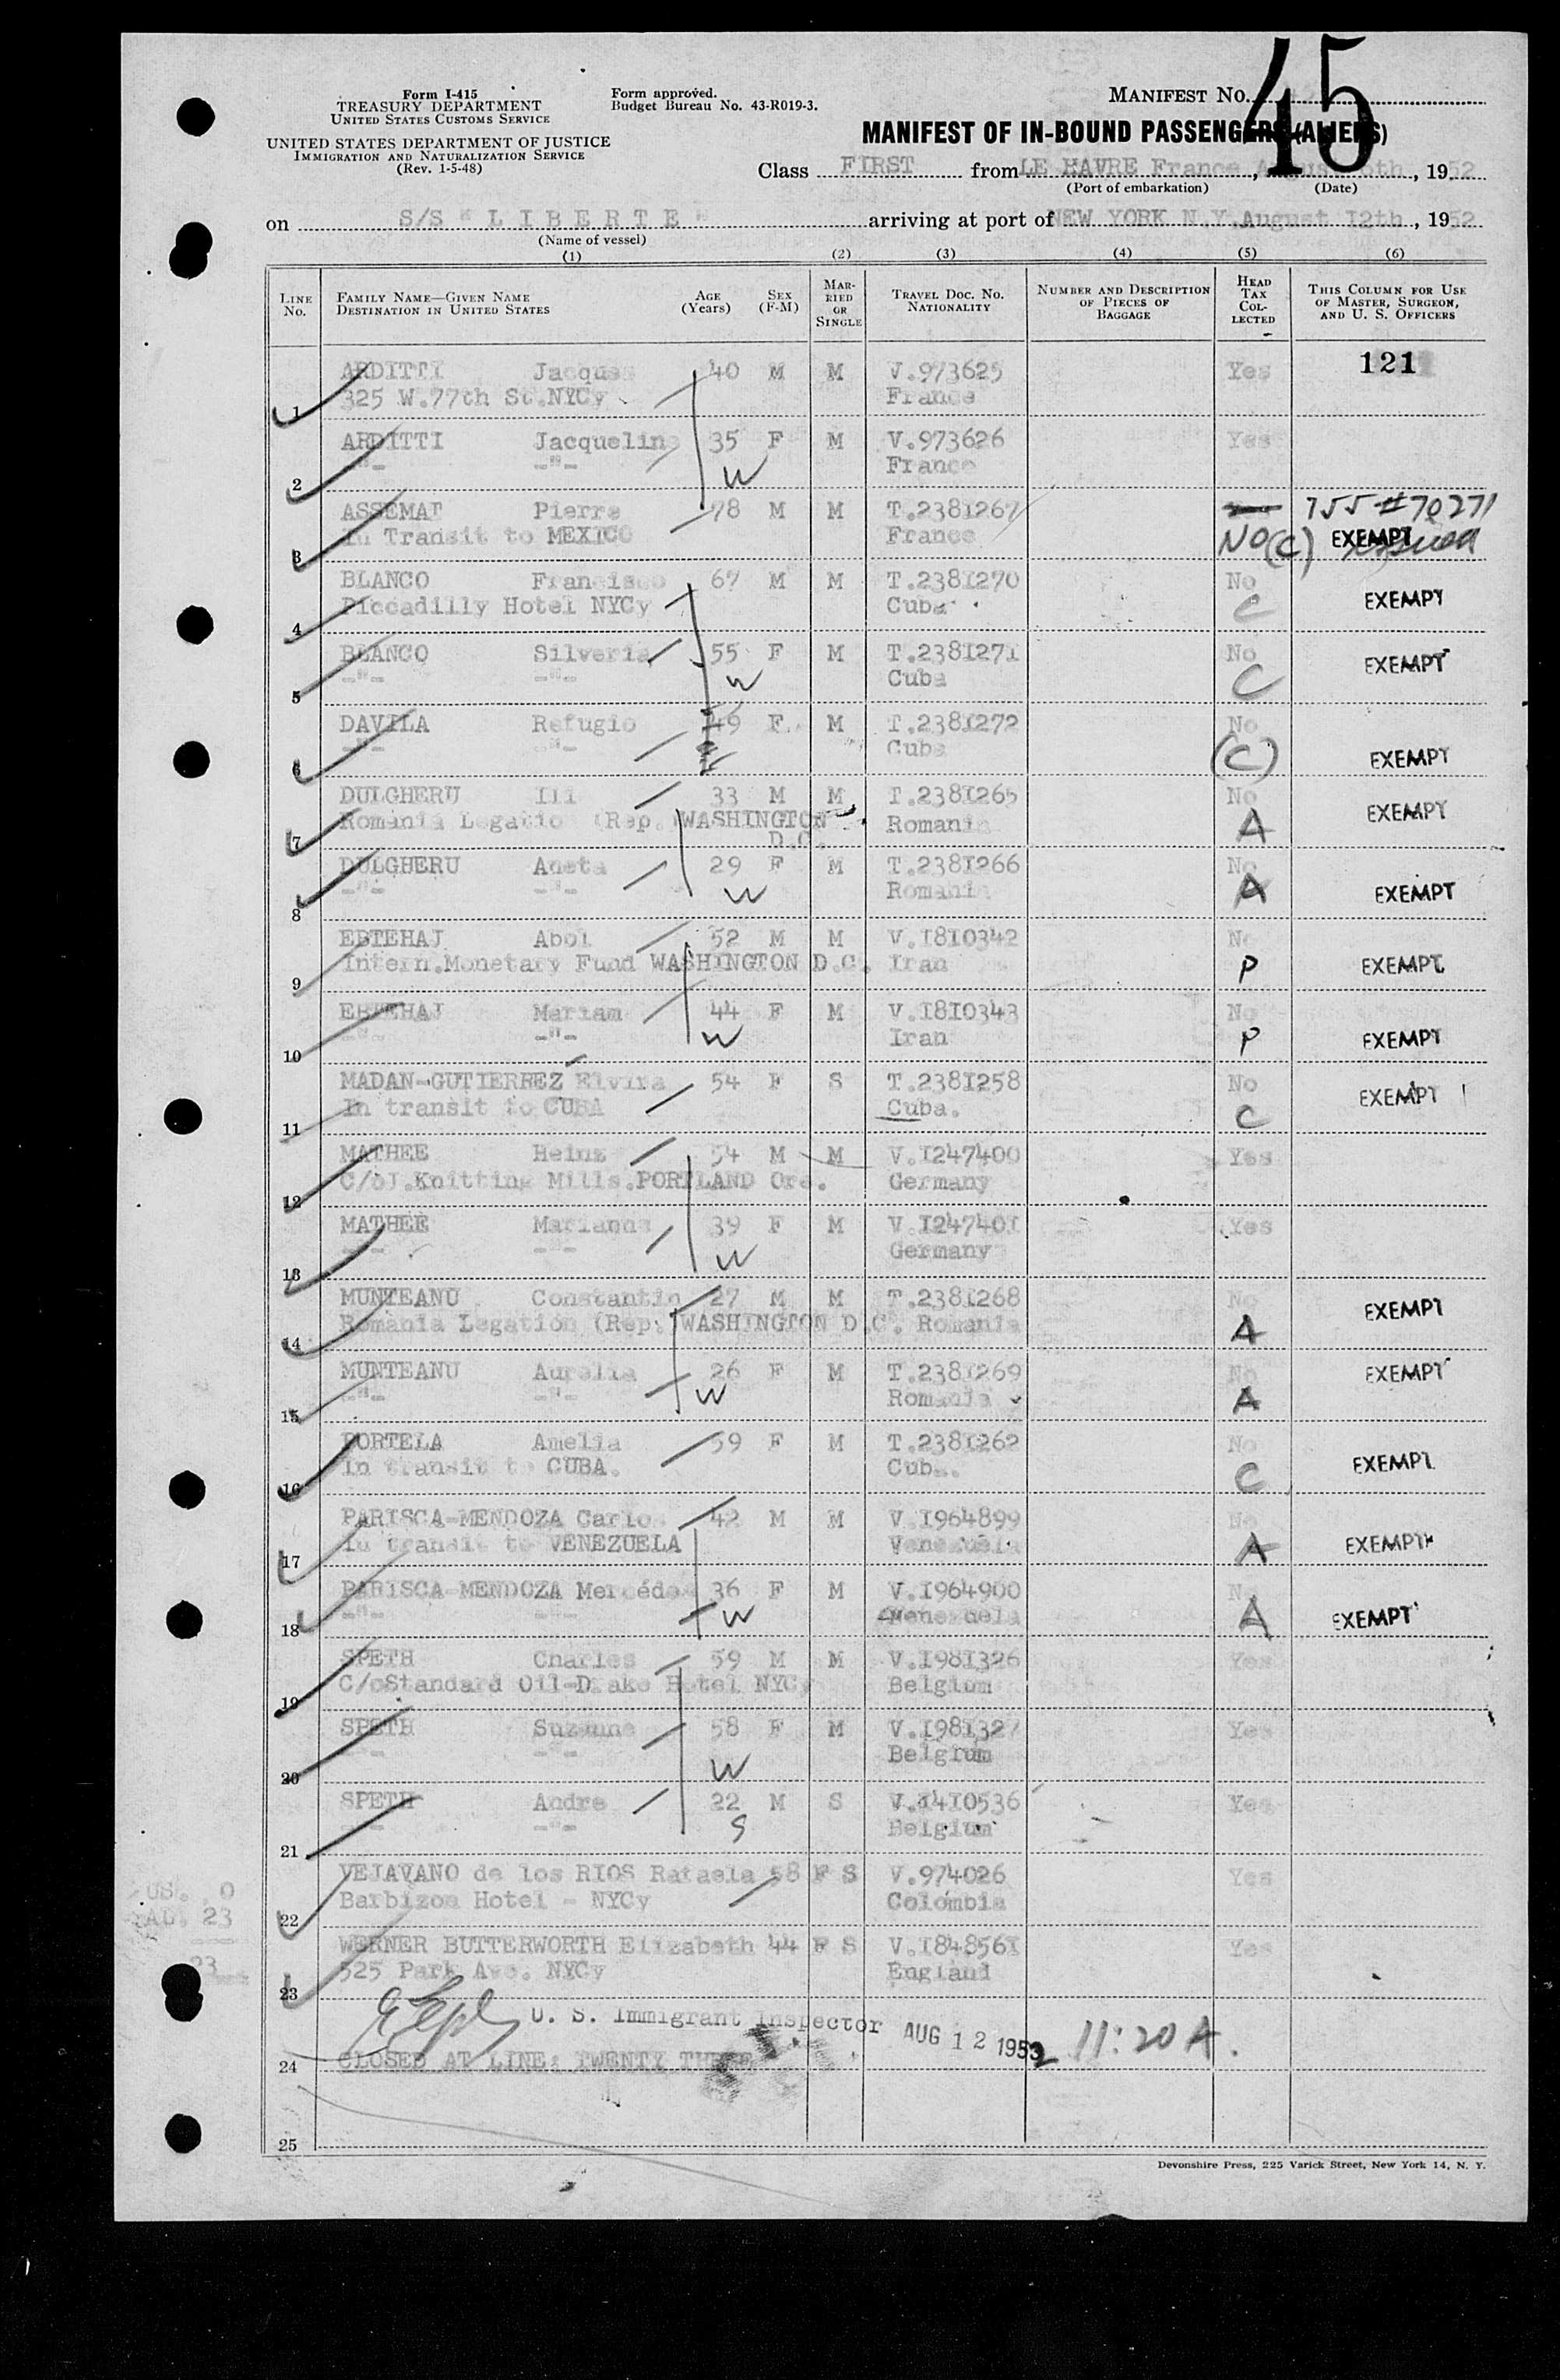 45
Form I-415
TREASURY DEPARTMENT
UNITED STATES CUSTOMS SERVICE
UNITED STATES DEPARTMENT OF JUSTICE
IMMIGRATION AND NATURALIZATION SERVICE
(Rev. 1-5-48)
Form approved.
Budget Bureau No. 43-R019-3.
MANIFEST NO.
MANIFEST OF IN-BOUND PASSENGERS (ALIENS)
Class FIRST from LE HAVRE France, August 6th, 1952
(Port of embarkation) (Date)
on S/S " L I B E R T E " arriving at port of NEW YORK N.Y. August 12th, 1952
(Name of vessel)
(1) (2) (3) (4) (5) (6)
LINE No. FAMILY NAME—GIVEN NAME DESTINATION IN UNITED STATES AGE (Years) SEX (F-M) MARRIED OR SINGLE TRAVEL DOC. NO. NATIONALITY NUMBER AND DESCRIPTION OF PIECES OF BAGGAGE HEAD TAX COLLECTED THIS COLUMN FOR USE OF MASTER, SURGEON, AND U. S. OFFICERS
121
ARDITTI Jacques 40 M M V.973625 Yes
1 325 W.77th St.NYCy France
ARDITTI Jacqueline 35 F M V.973626 Yes
2 -"- -"- W France
ASSEMAT Pierre 78 M M T.2381267 755 #70271
3 In Transit to MEXICO France NO (C) EXEMPT issued
BLANCO Francisco 67 M M T.2381270 No
4 Piccadilly Hotel NYCy Cuba C EXEMPT
BLANCO Silveria 55 F M T.2381271 No EXEMPT
5 -"- -"- W Cuba C
DAVILA Refugio 49 F. M T.2381272 No
6 -"- -"- Cuba (C) EXEMPT
DULGHERU Ili 33 M M T.2381265 No EXEMPT
7 Romania Legation (Rep. WASHINGTON D.C. Romania A
DULGHERU Aneta 29 F M T.2381266 No
8 -"- -"- W Romania A EXEMPT
EBTEHAJ Abol 52 M M V.1810342 No
9 Intern.Monetary Fund WASHINGTON D.C. Iran P EXEMPT
EBTEHAJ Mariam 44 F M V.1810343 No
10 -"- -"- W Iran P EXEMPT
MADAN-GUTIERREZ Elvira 54 F S T.2381258 No EXEMPT
11 In transit to CUBA Cuba. C
MATHEE Heinz 54 M M V.1247400 Yes
12 C/oJ.Knitting Mills.PORTLAND Ore. Germany
MATHEE Marianna 39 F M V.1247401 Yes
13 -"- -"- W Germany
MUNTEANU Constantin 27 M M T.2381268 No EXEMPT
14 Romania Legation (Rep. WASHINGTON D.C. Romania A
MUNTEANU Aurelia 26 F M T.2381269 No EXEMPT
15 -"- -"- W Romania A
PORTELA Amelia 59 F M T.2381262 No
16 In transit to CUBA. Cuba. C EXEMPT
PARISCA-MENDOZA Carlos 42 M M V.1964899 No
17 In transit to VENEZUELA Venezuela A EXEMPT
PARISCA-MENDOZA Mercédes 36 F M V.1964900 No
18 -"- -"- W Venezuela A EXEMPT
SPETH Charles 59 M M V.1981326 Yes
19 C/oStandard Oil-Drake Hotel NYCy Belgium
SPETH Suzanne 58 F M V.1981327 Yes
20 -"- -"- W Belgium
SPETH Andre 22 M S V.1410536 Yes
21 -"- -"- S Belgium
VEJAVANO de los RIOS Rafaela 58 F S V.974026 Yes
22 Barbizon Hotel - NYCy Colombia
WERNER BUTTERWORTH Elizabeth 44 F S V.1848561 Yes
23 525 Park Ave. NYCy England
US. . 0
AL. 23
23
U. S. Immigrant Inspector AUG 12 1952 11:20 A.
24 CLOSED AT LINE: TWENTY THREE
25
Devonshire Press, 225 Varick Street, New York 14, N. Y.